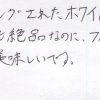 ングされたホワイ
も絶品なのに、フ
美味しいです。